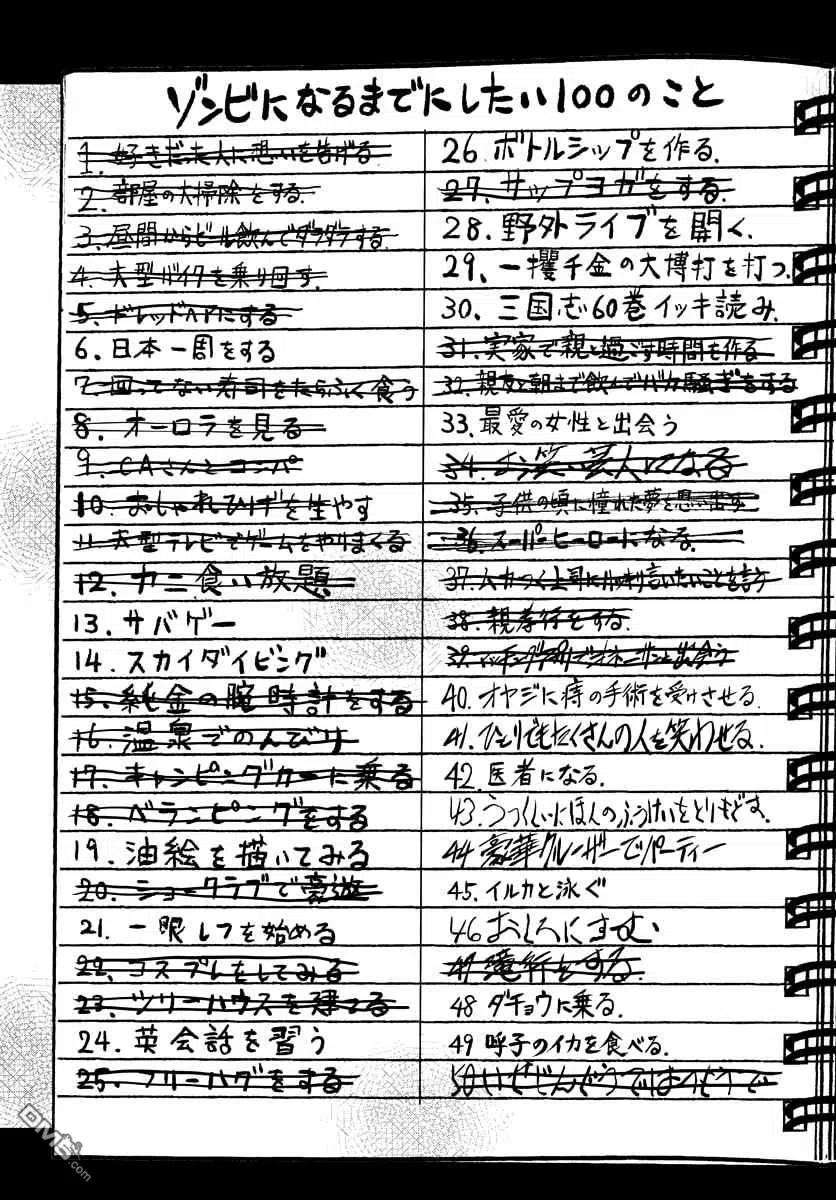 ゾンビになるまでにしたい100のこと
1. 好きだった人に想いを告げる
2. 部屋の大掃除をする.
3. 昼間からビール飲んでダラダラする
4. 大型バイクを乗り回す.
5. ドレッドヘアにする
6. 日本一周をする
7. 回ってない寿司をたらふく食う
8. オーロラを見る
9. CAさんとコンパ
10. おしゃれひげを生やす
11. 大型テレビでゲームをやりまくる
12. カニ食い放題
13. サバゲー
14. スカイダイビング
15. 純金の腕時計をする
16. 温泉でのんびり
17. キャンピングカーに乗る
18. ベランピングをする
19. 油絵を描いてみる
20. ショークラブで豪遊
21. 一眼レフを始める
22. コスプレをしてみる
23. ツリーハウスを建てる
24. 英会話を習う
25. フリーハグをする
26. ボトルシップを作る.
27. サップヨガをする.
28. 野外ライブを開く.
29. 一攫千金の大博打を打つ.
30. 三国志60巻イッキ読み.
31. 実家で親と過ごす時間を作る
32. 親友と朝まで飲んでバカ騒ぎをする
33. 最愛の女性と出会う
34. お笑い芸人になる
35. 子供の頃に憧れた夢を思い出す
36. スーパーヒーローになる.
37. ムカつく上司にハッキリ言いたいことを言う
38. 親孝行をする.
39. マッチングアプリで出会う
40. オヤジに痔の手術を受けさせる.
41. ひとりでもたくさんの人を笑わせる.
42. 医者になる.
43. うつくしいにほんのふうけいをとりもどす.
44 豪華クルーザーでパーティー
45. イルカと泳ぐ
46 おしろにすむ
47 滝行をする.
48 ダチョウに乗る.
49 呼子のイカを食べる.
50
DM5
.com